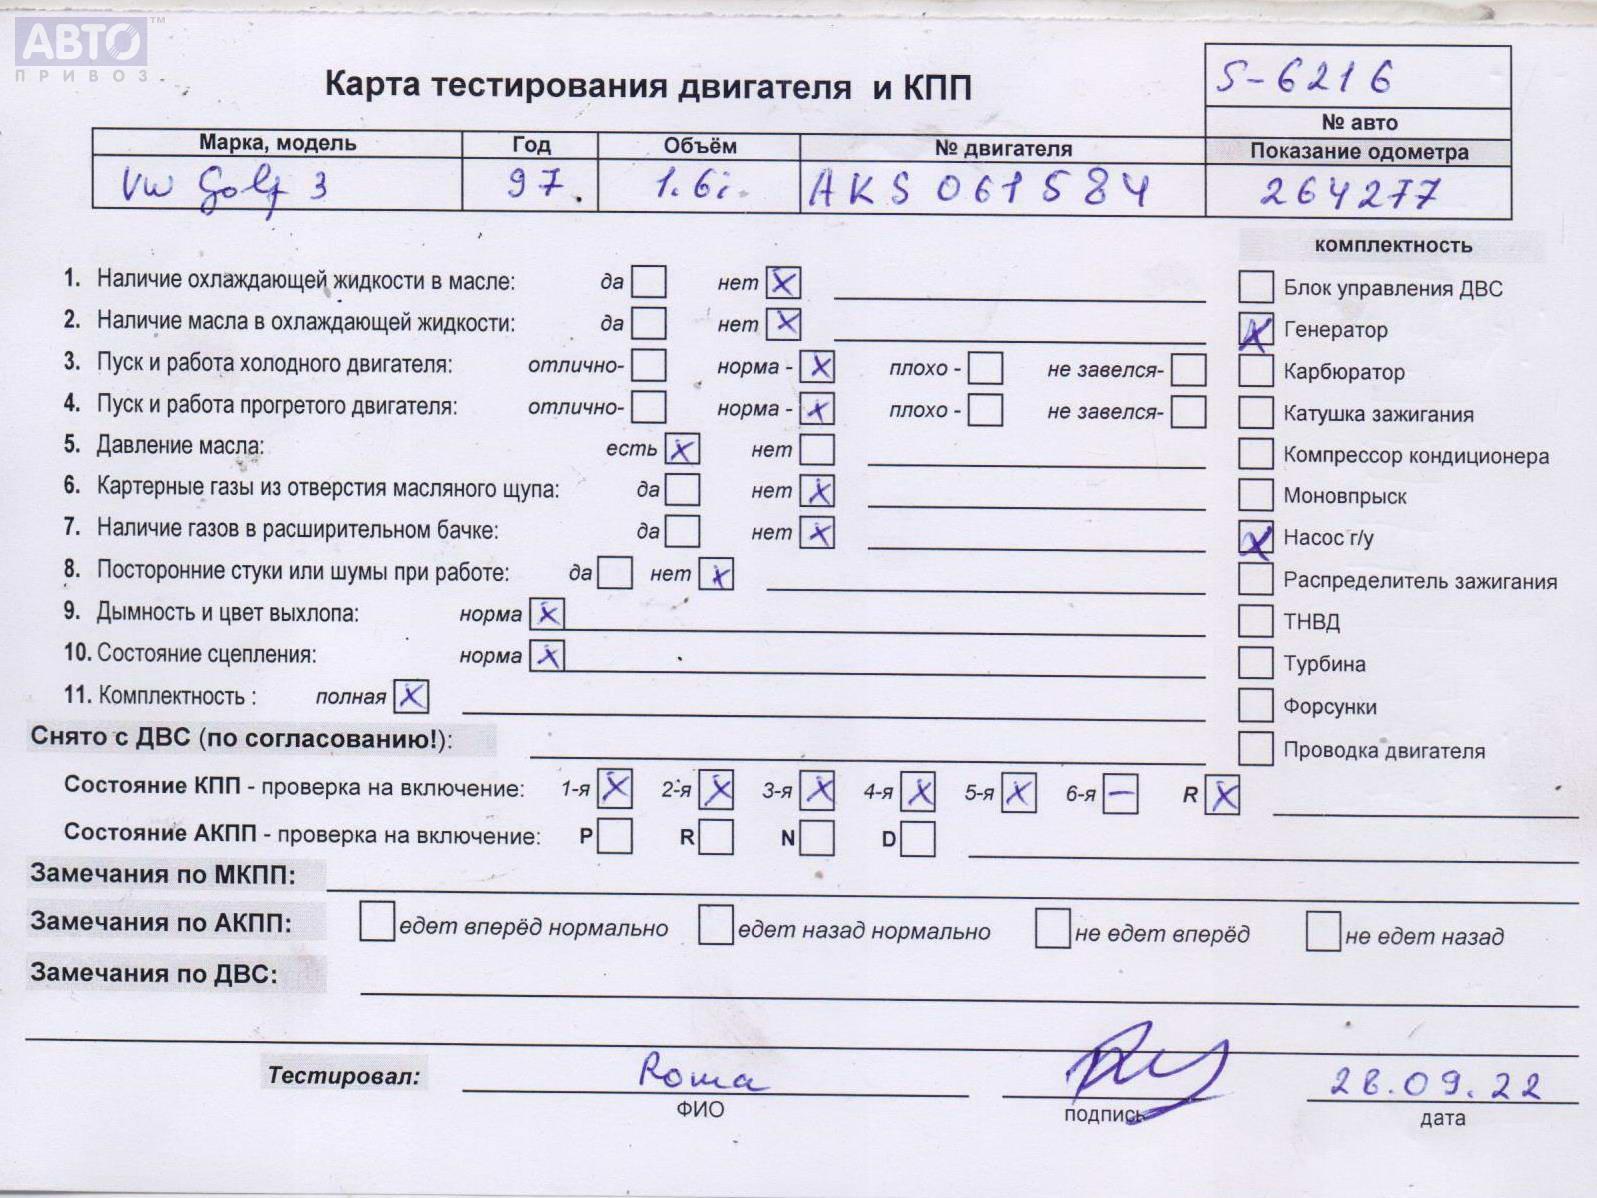 АВТО™
ПРИВОЗ
S-6216
Карта тестирования двигателя и КПП
№ авто
Марка, модель Год Объём № двигателя Показание одометра
VW Golf 3 97. 1.6i. AKS 061584 264277
комплектность
1. Наличие охлаждающей жидкости в масле: да нет X
Блок управления ДВС
2. Наличие масла в охлаждающей жидкости: да нет X
X Генератор
3. Пуск и работа холодного двигателя: отлично- норма - X плохо - не завелся-
Карбюратор
4. Пуск и работа прогретого двигателя: отлично- норма - X плохо - не завелся-
Катушка зажигания
5. Давление масла: есть X нет
Компрессор кондиционера
6. Картерные газы из отверстия масляного щупа: да нет X
Моновпрыск
7. Наличие газов в расширительном бачке: да нет X
X Насос г/у
8. Посторонние стуки или шумы при работе: да нет X
Распределитель зажигания
9. Дымность и цвет выхлопа: норма X
ТНВД
10. Состояние сцепления: норма X
Турбина
11. Комплектность : полная X
Форсунки
Снято с ДВС (по согласованию!):
Проводка двигателя
Состояние КПП - проверка на включение: 1-я X 2-я X 3-я X 4-я X 5-я X 6-я — R X
Состояние АКПП - проверка на включение: P R N D
Замечания по МКПП:
Замечания по АКПП: едет вперёд нормально едет назад нормально не едет вперёд не едет назад
Замечания по ДВС:
Тестировал: Roma 28.09.22
ФИО подпись дата